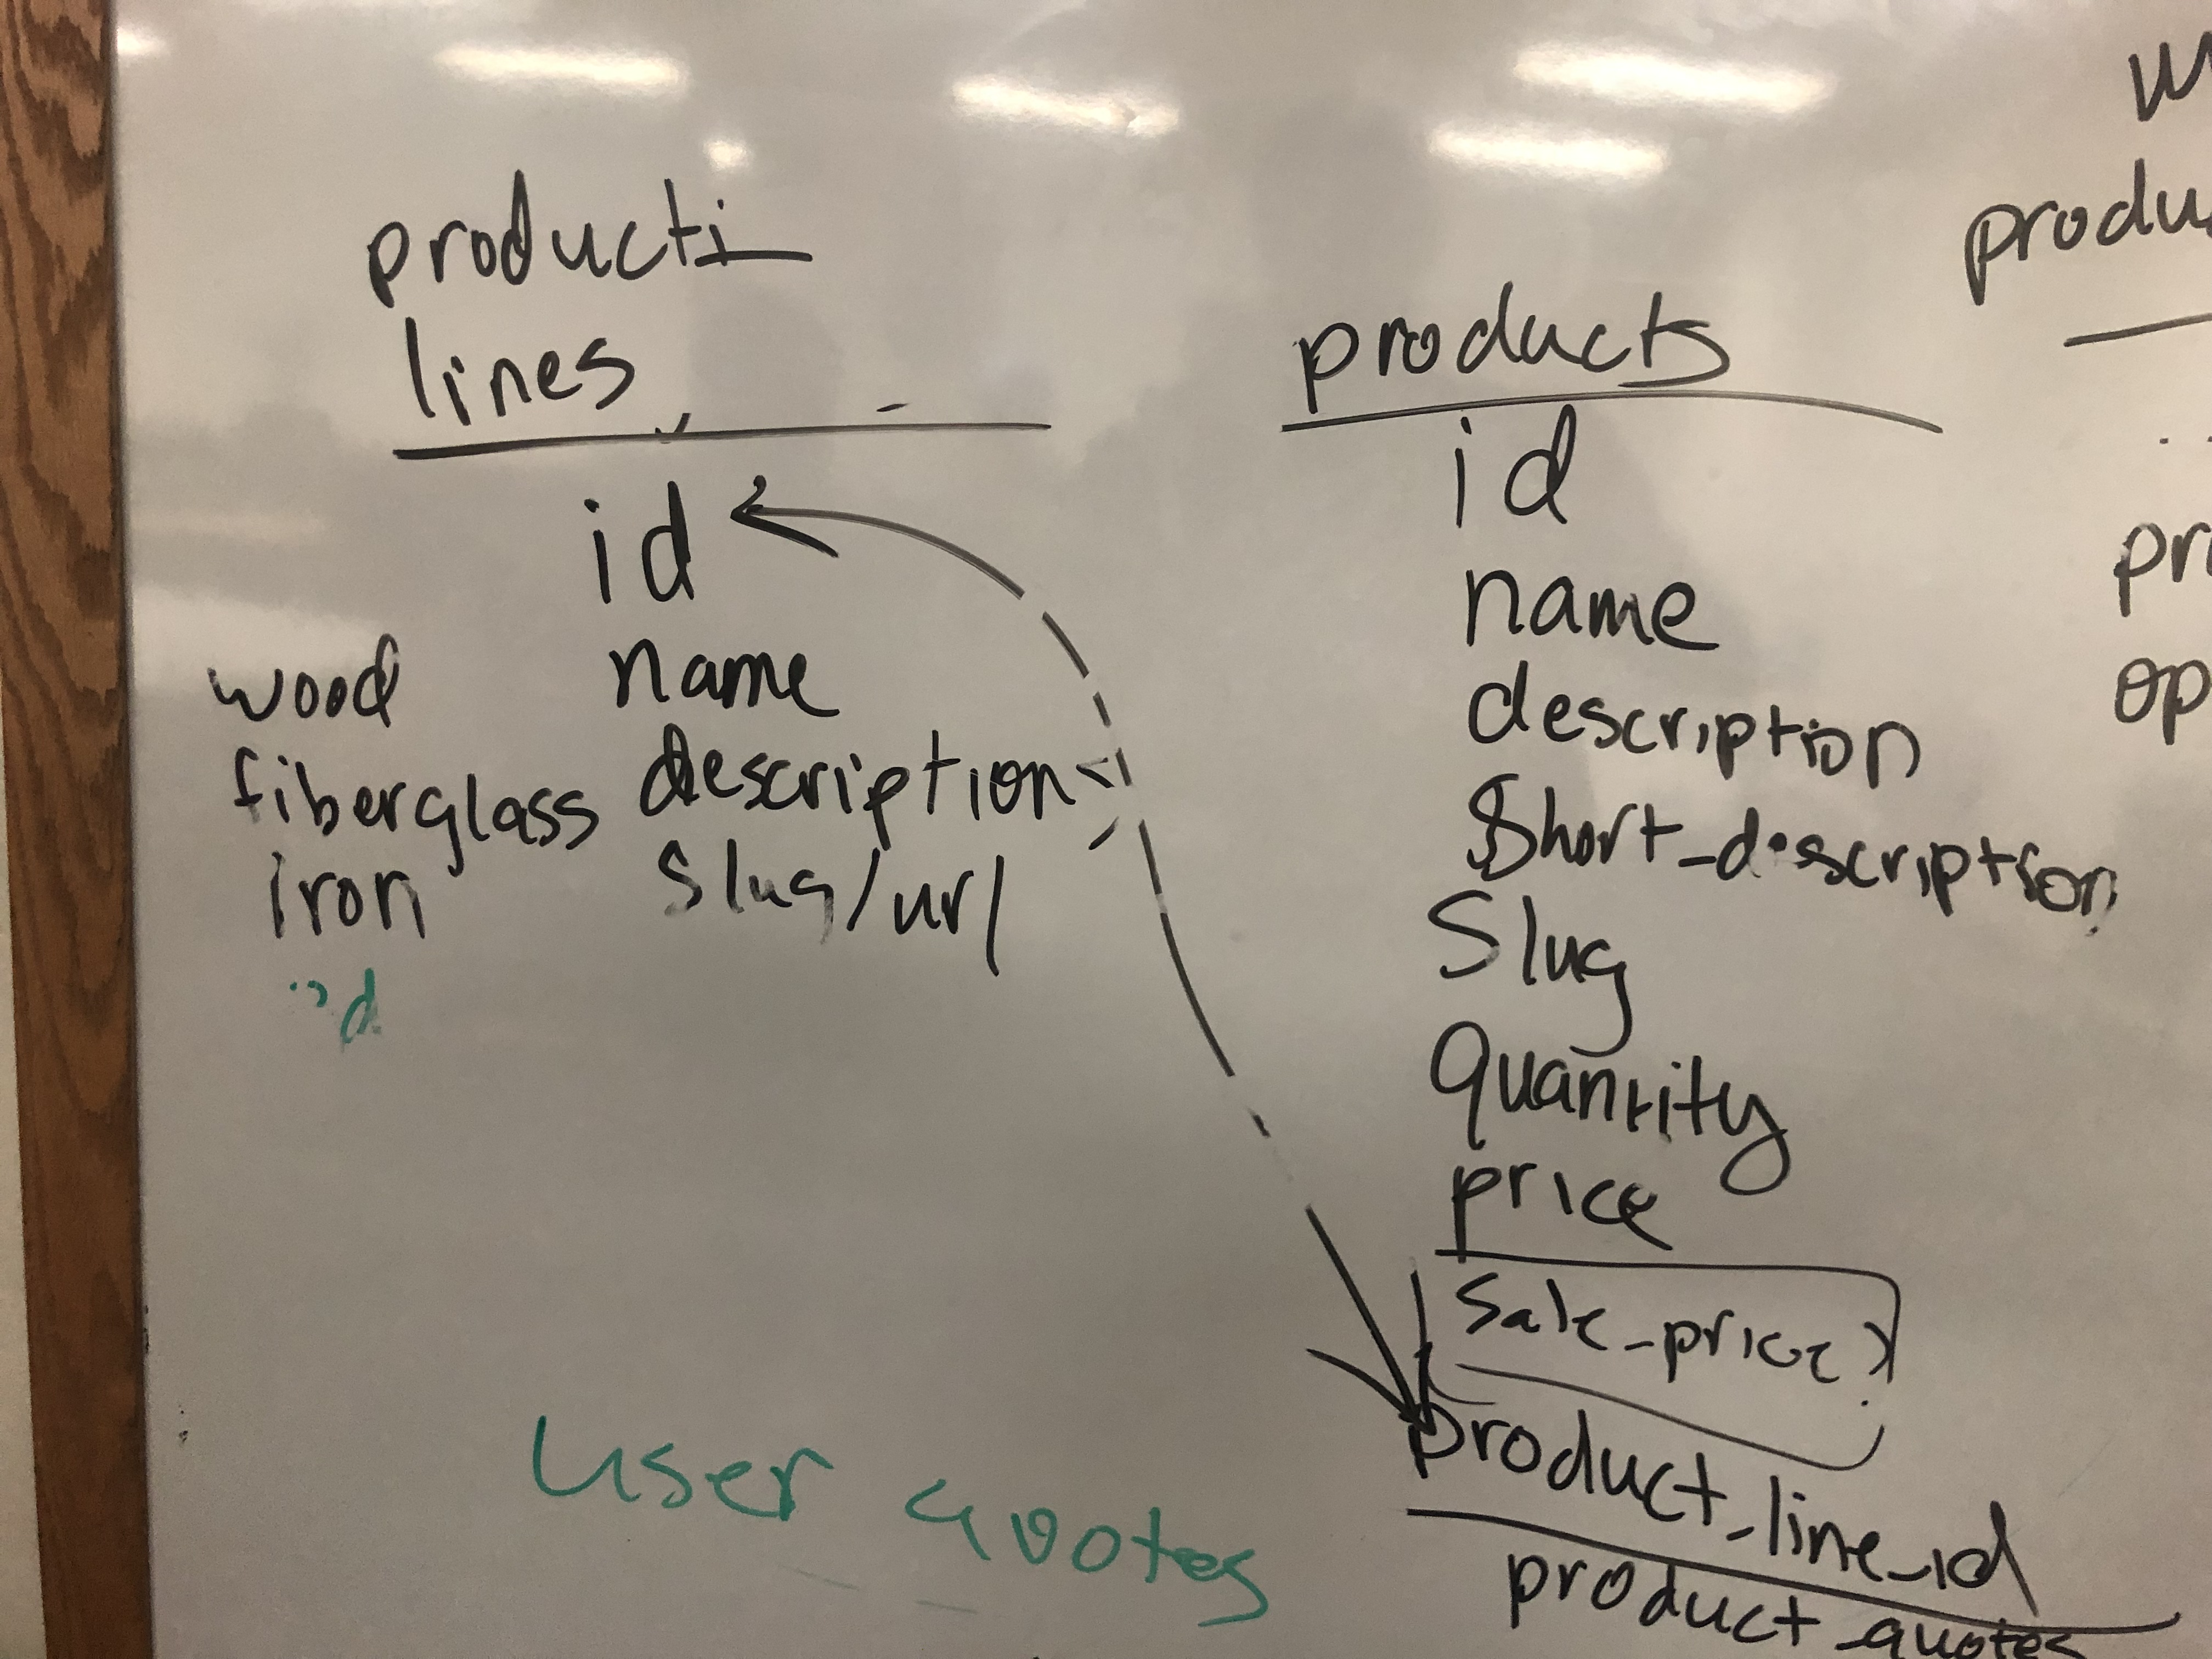 product
lines
id
name
description
slug/url
wood
fiberglass
iron
user quotes
products
id
name
description
Short_description
Slug
Quantity
price
Sale_price
product_line_id
product_quotes